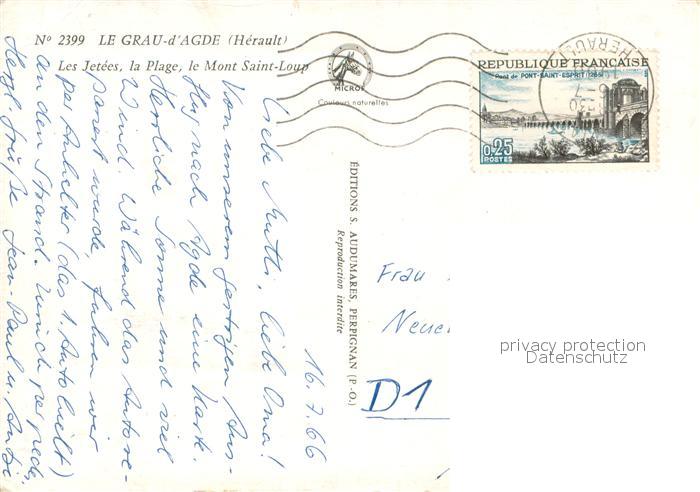 Nº 2399 LE GRAU-d'AGDE (Hérault)
Les Jetées, la Plage, le Mont Saint-Loup
MICROF
Couleurs naturelles
REPUBLIQUE FRANÇAISE
Pont de PONT-SAINT-ESPRIT (1265)
0,25
POSTES
HERAULT
ÉDITIONS S. AUDUMARES, PERPIGNAN (P.-O.)
Reproduction interdite
16.7.66
Liebe Mutti, liebe Oma!
Von unserem gestrigen Aus-
flug nach Agde eine Karte.
Herrliche Sonne und viel
Wind. Während das Auto re-
pariert wurde, fuhren wir
per Anhalter (das 1. Auto hielt)
an den Strand. Zurück per pedes.
Herzl. Grüße Jean-Paul u.
Frau
Neue
D1
privacy protection
Datenschutz